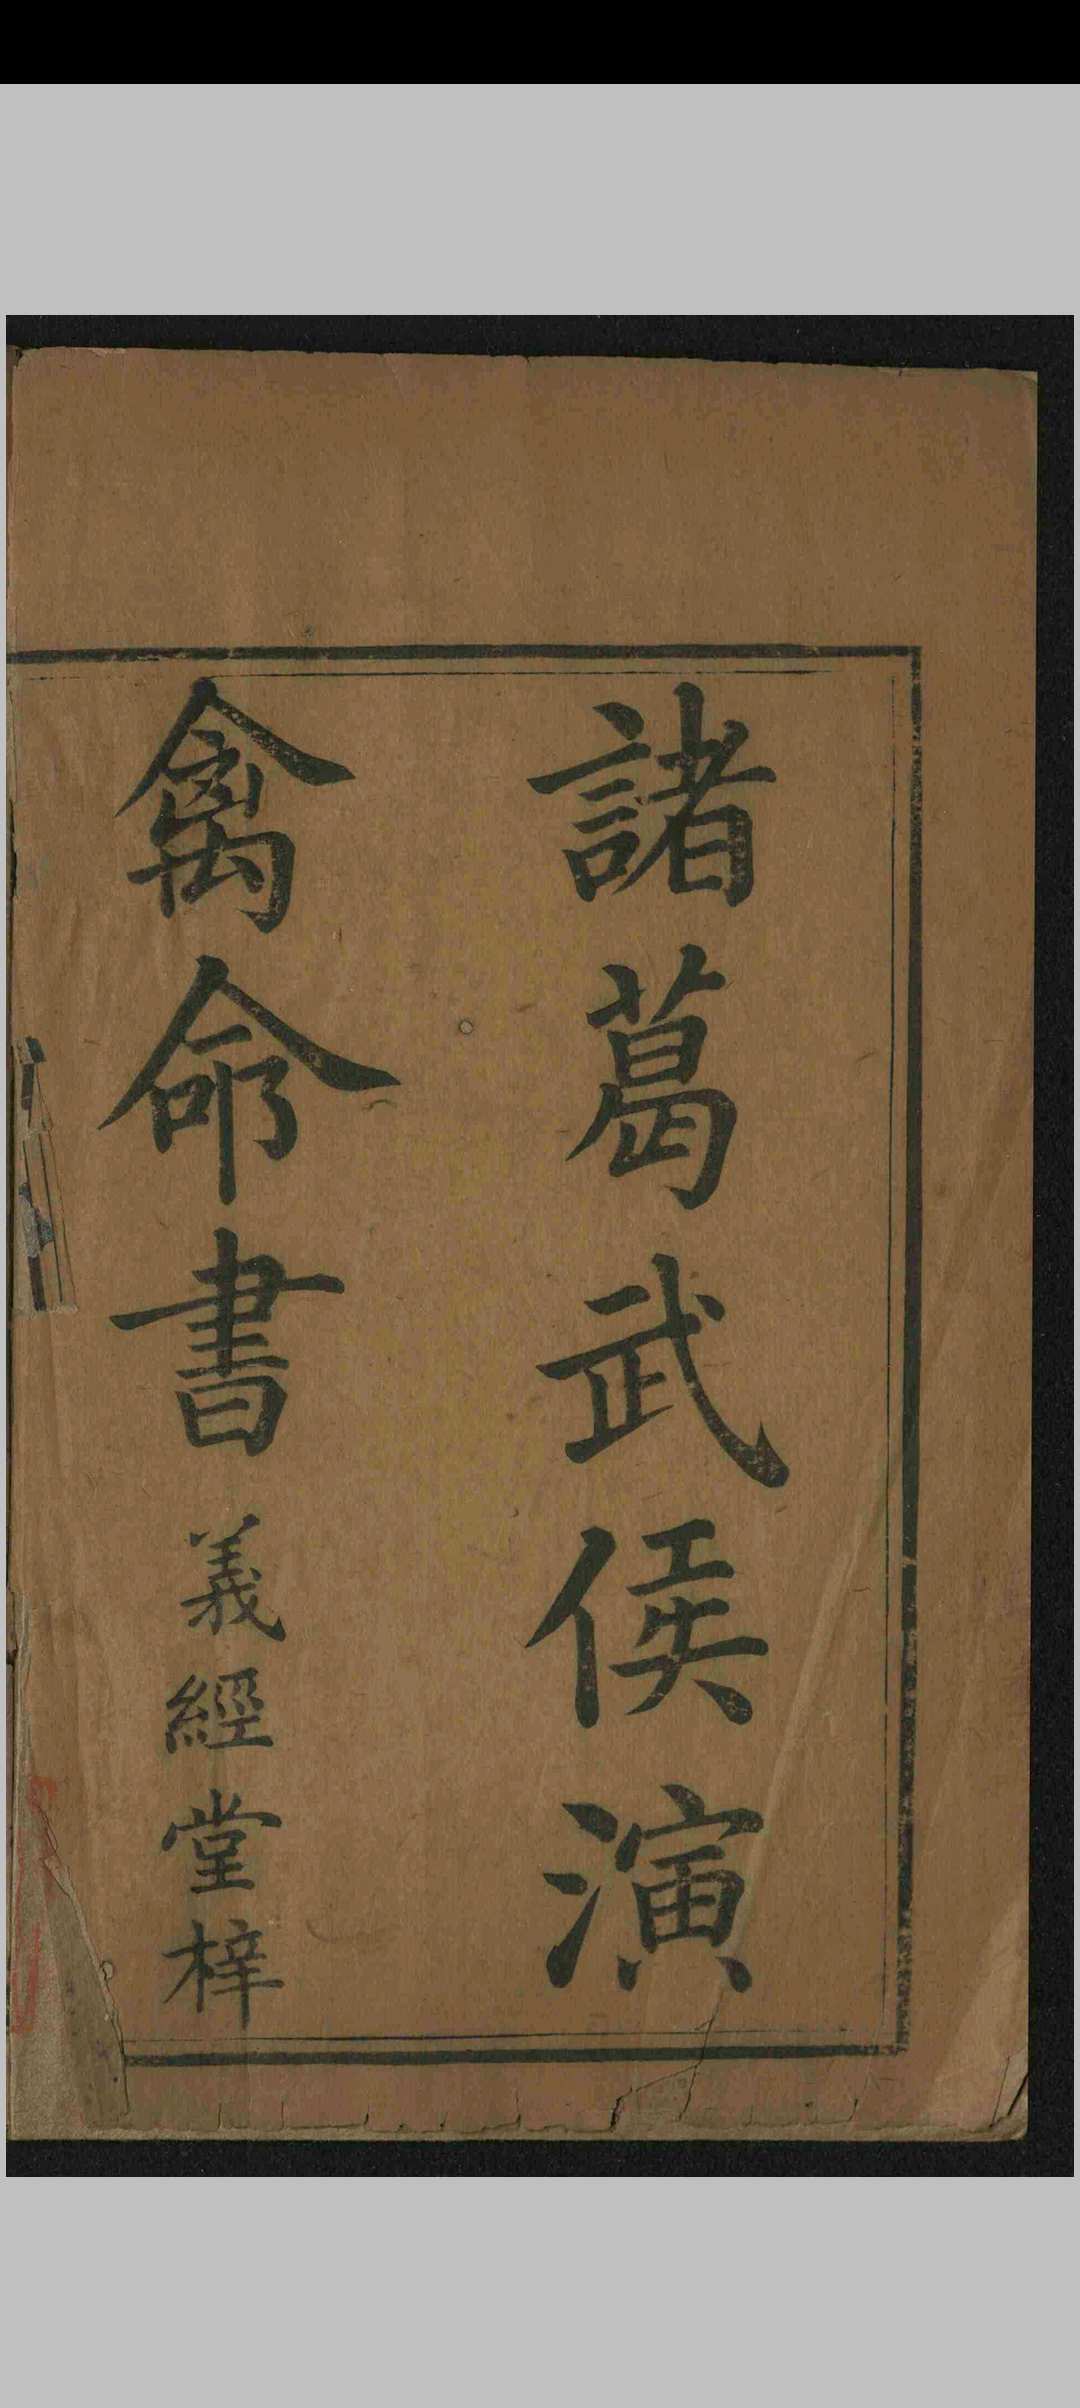 諸葛武侯演
禽命書 義經堂梓